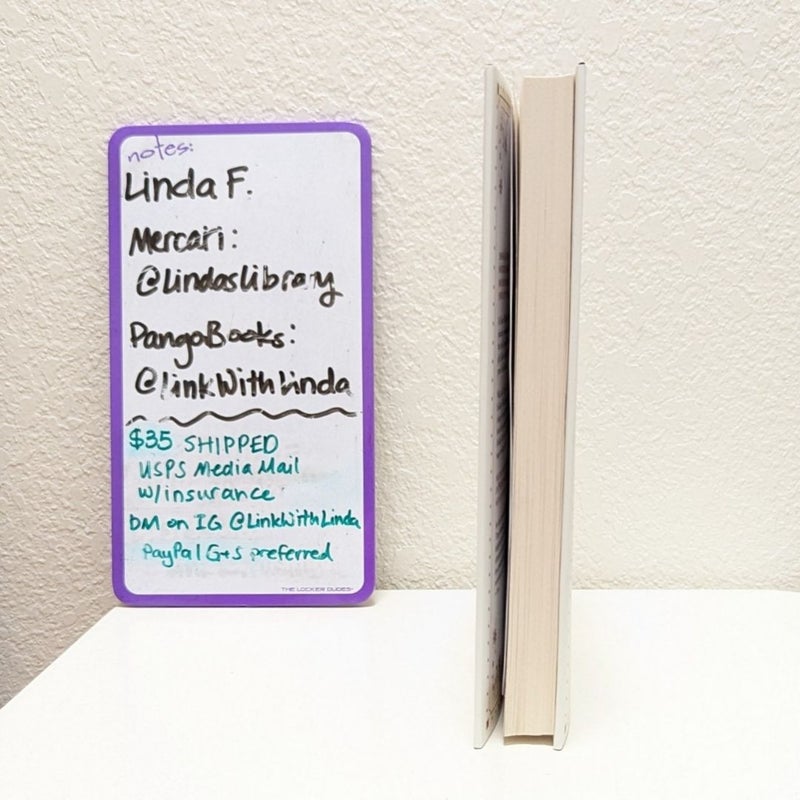 notes:
Linda F.
Mercari:
@lindaslibrary
PangoBooks:
@linkWithLinda
$35 SHIPPED
USPS Media Mail
w/insurance
DM on IG @LinkWithLinda
PayPal G+S preferred
THE LOCKER DUDES